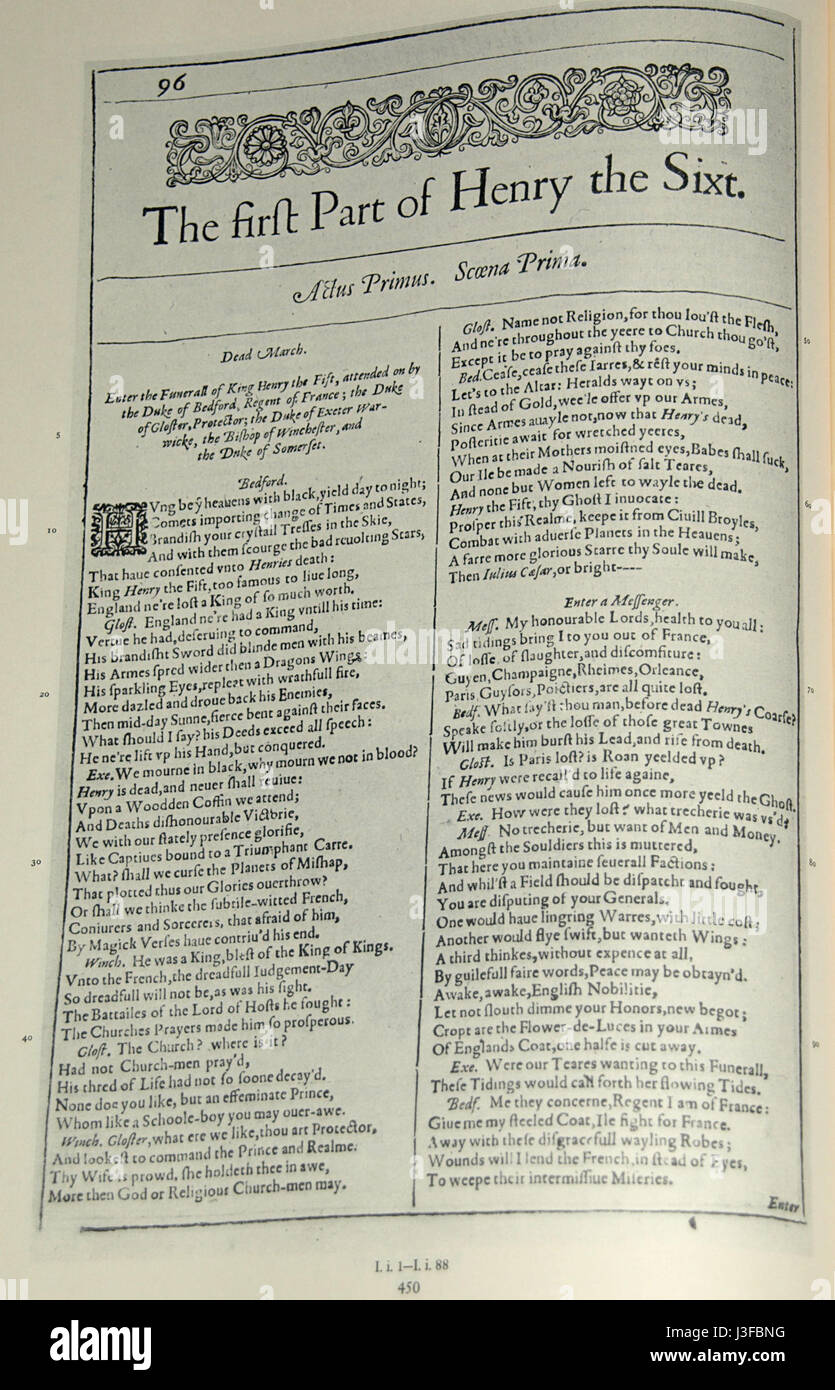 96
The first Part of Henry the Sixt.
Actus Primus. Scœna Prima.
Dead March.
Enter the Funerall of King Henry the Fift, attended on by
the Duke of Bedford, Regent of France; the Duke
of Gloster, Protector; the Duke of Exeter War-
wicke, the Bishop of Winchester, and
5
the Duke of Somerset.
Bedford.
HVng be ẙ heauens with black, yield day to night;
Comets importing change of Times and States,
10
Brandish your crystall Tresses in the Skie,
And with them scourge the bad reuolting Stars,
That haue consented vnto Henries death:
King Henry the Fift, too famous to liue long,
England ne're lost a King of so much worth.
Glost. England ne're had a King vntill his time:
Vertue he had, deseruing to command,
His brandisht Sword did blinde men with his beames,
His Armes spred wider then a Dragons Wings:
His sparkling Eyes, repleat with wrathfull fire,
20
More dazled and droue back his Enemies,
Then mid-day Sunne, fierce bent against their faces.
What should I say? his Deeds exceed all speech:
He ne're lift vp his Hand, but conquered.
Exe. We mourne in black, why mourn we not in blood?
Henry is dead, and neuer shall reuiue:
Vpon a Woodden Coffin we attend;
And Deaths dishonourable Victorie,
We with our stately presence glorifie,
Like Captiues bound to a Triumphant Carre.
30
What? shall we curse the Planets of Mishap,
That plotted thus our Glories ouerthrow?
Or shall we thinke the subtile-witted French,
Coniurers and Sorcerers, that afraid of him,
By Magick Verses haue contriu'd his end.
Winch. He was a King, blest of the King of Kings.
Vnto the French, the dreadfull Iudgement-Day
So dreadfull will not be, as was his sight.
The Battailes of the Lord of Hosts he fought:
The Churches Prayers made him so prosperous.
40
Glost. The Church? where is it?
Had not Church-men pray'd,
His thred of Life had not so soone decay'd.
None doe you like, but an effeminate Prince,
Whom like a Schoole-boy you may ouer-awe.
Winch. Gloster, what ere we like, thou art Protector,
And lookest to command the Prince and Realme.
Thy Wife is prowd, she holdeth thee in awe,
More then God or Religious Church-men may.
Glost. Name not Religion, for thou lou'st the Flesh,
And ne're throughout the yeere to Church thou go'st,
50
Except it be to pray against thy foes.
Bed. Cease, cease these Iarres, & rest your minds in peace:
Let's to the Altar: Heralds wayt on vs;
In stead of Gold, wee'le offer vp our Armes,
Since Armes auayle not, now that Henry's dead,
Posteritie await for wretched yeeres,
When at their Mothers moistned eyes, Babes shall suck,
Our Ile be made a Nourish of salt Teares,
And none but Women left to wayle the dead.
Henry the Fift, thy Ghost I inuocate:
60
Prosper this Realme, keepe it from Ciuill Broyles,
Combat with aduerse Planets in the Heauens;
A farre more glorious Starre thy Soule will make,
Then Iulius Cæsar, or bright----
Enter a Messenger.
Mess. My honourable Lords, health to you all:
Sad tidings bring I to you out of France,
Of losse, of slaughter, and discomfiture:
Guyen, Champaigne, Rheimes, Orleance,
Paris Guysors, Poictiers, are all quite lost.
70
Bedf. What say'st thou man, before dead Henry's Coarse?
Speake softly, or the losse of those great Townes
Will make him burst his Lead, and rise from death.
Glost. Is Paris lost? is Roan yeelded vp?
If Henry were recall'd to life againe,
These news would cause him once more yeeld the Ghost.
Exe. How were they lost? what trecherie was vs'd?
Mess. No trecherie, but want of Men and Money.
Amongst the Souldiers this is muttered,
80
That here you maintaine seuerall Factions:
And whil'st a Field should be dispatcht and fought,
You are disputing of your Generals.
One would haue lingring Warres, with little cost;
Another would flye swift, but wanteth Wings:
A third thinkes, without expence at all,
By guilefull faire words, Peace may be obtayn'd.
Awake, awake, English Nobilitie,
Let not slouth dimme your Honors, new begot;
Cropt are the Flower-de-Luces in your Armes
90
Of Englands Coat, one halfe is cut away.
Exe. Were our Teares wanting to this Funerall,
These Tidings would call forth her flowing Tides.
Bedf. Me they concerne, Regent I am of France:
Giue me my steeled Coat, Ile fight for France.
Away with these disgracefull wayling Robes;
Wounds will I lend the French, in stead of Eyes,
To weepe their intermissiue Miseries.
Enter
I. i. 1–I. i. 88
450
alamy stock photo
J3FBNG
www.alamy.com